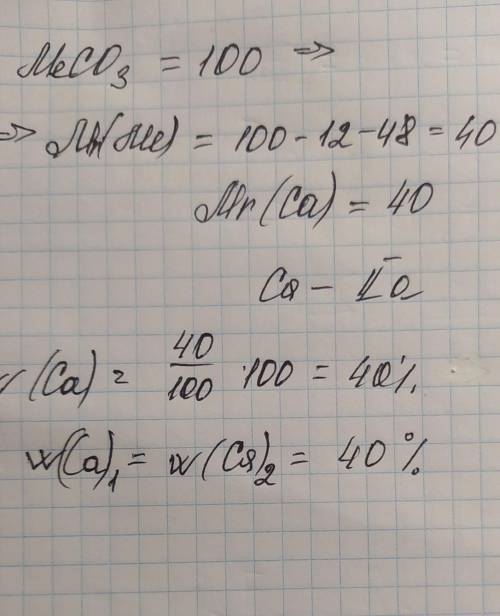 MeCO₃ = 100 =>
=> Mr(Me) = 100 - 12 - 48 = 40
Mr(Ca) = 40
Ca - Ia
w(Ca) = 40/100 · 100 = 40%
w(Ca)₁ = w(Ca)₂ = 40%